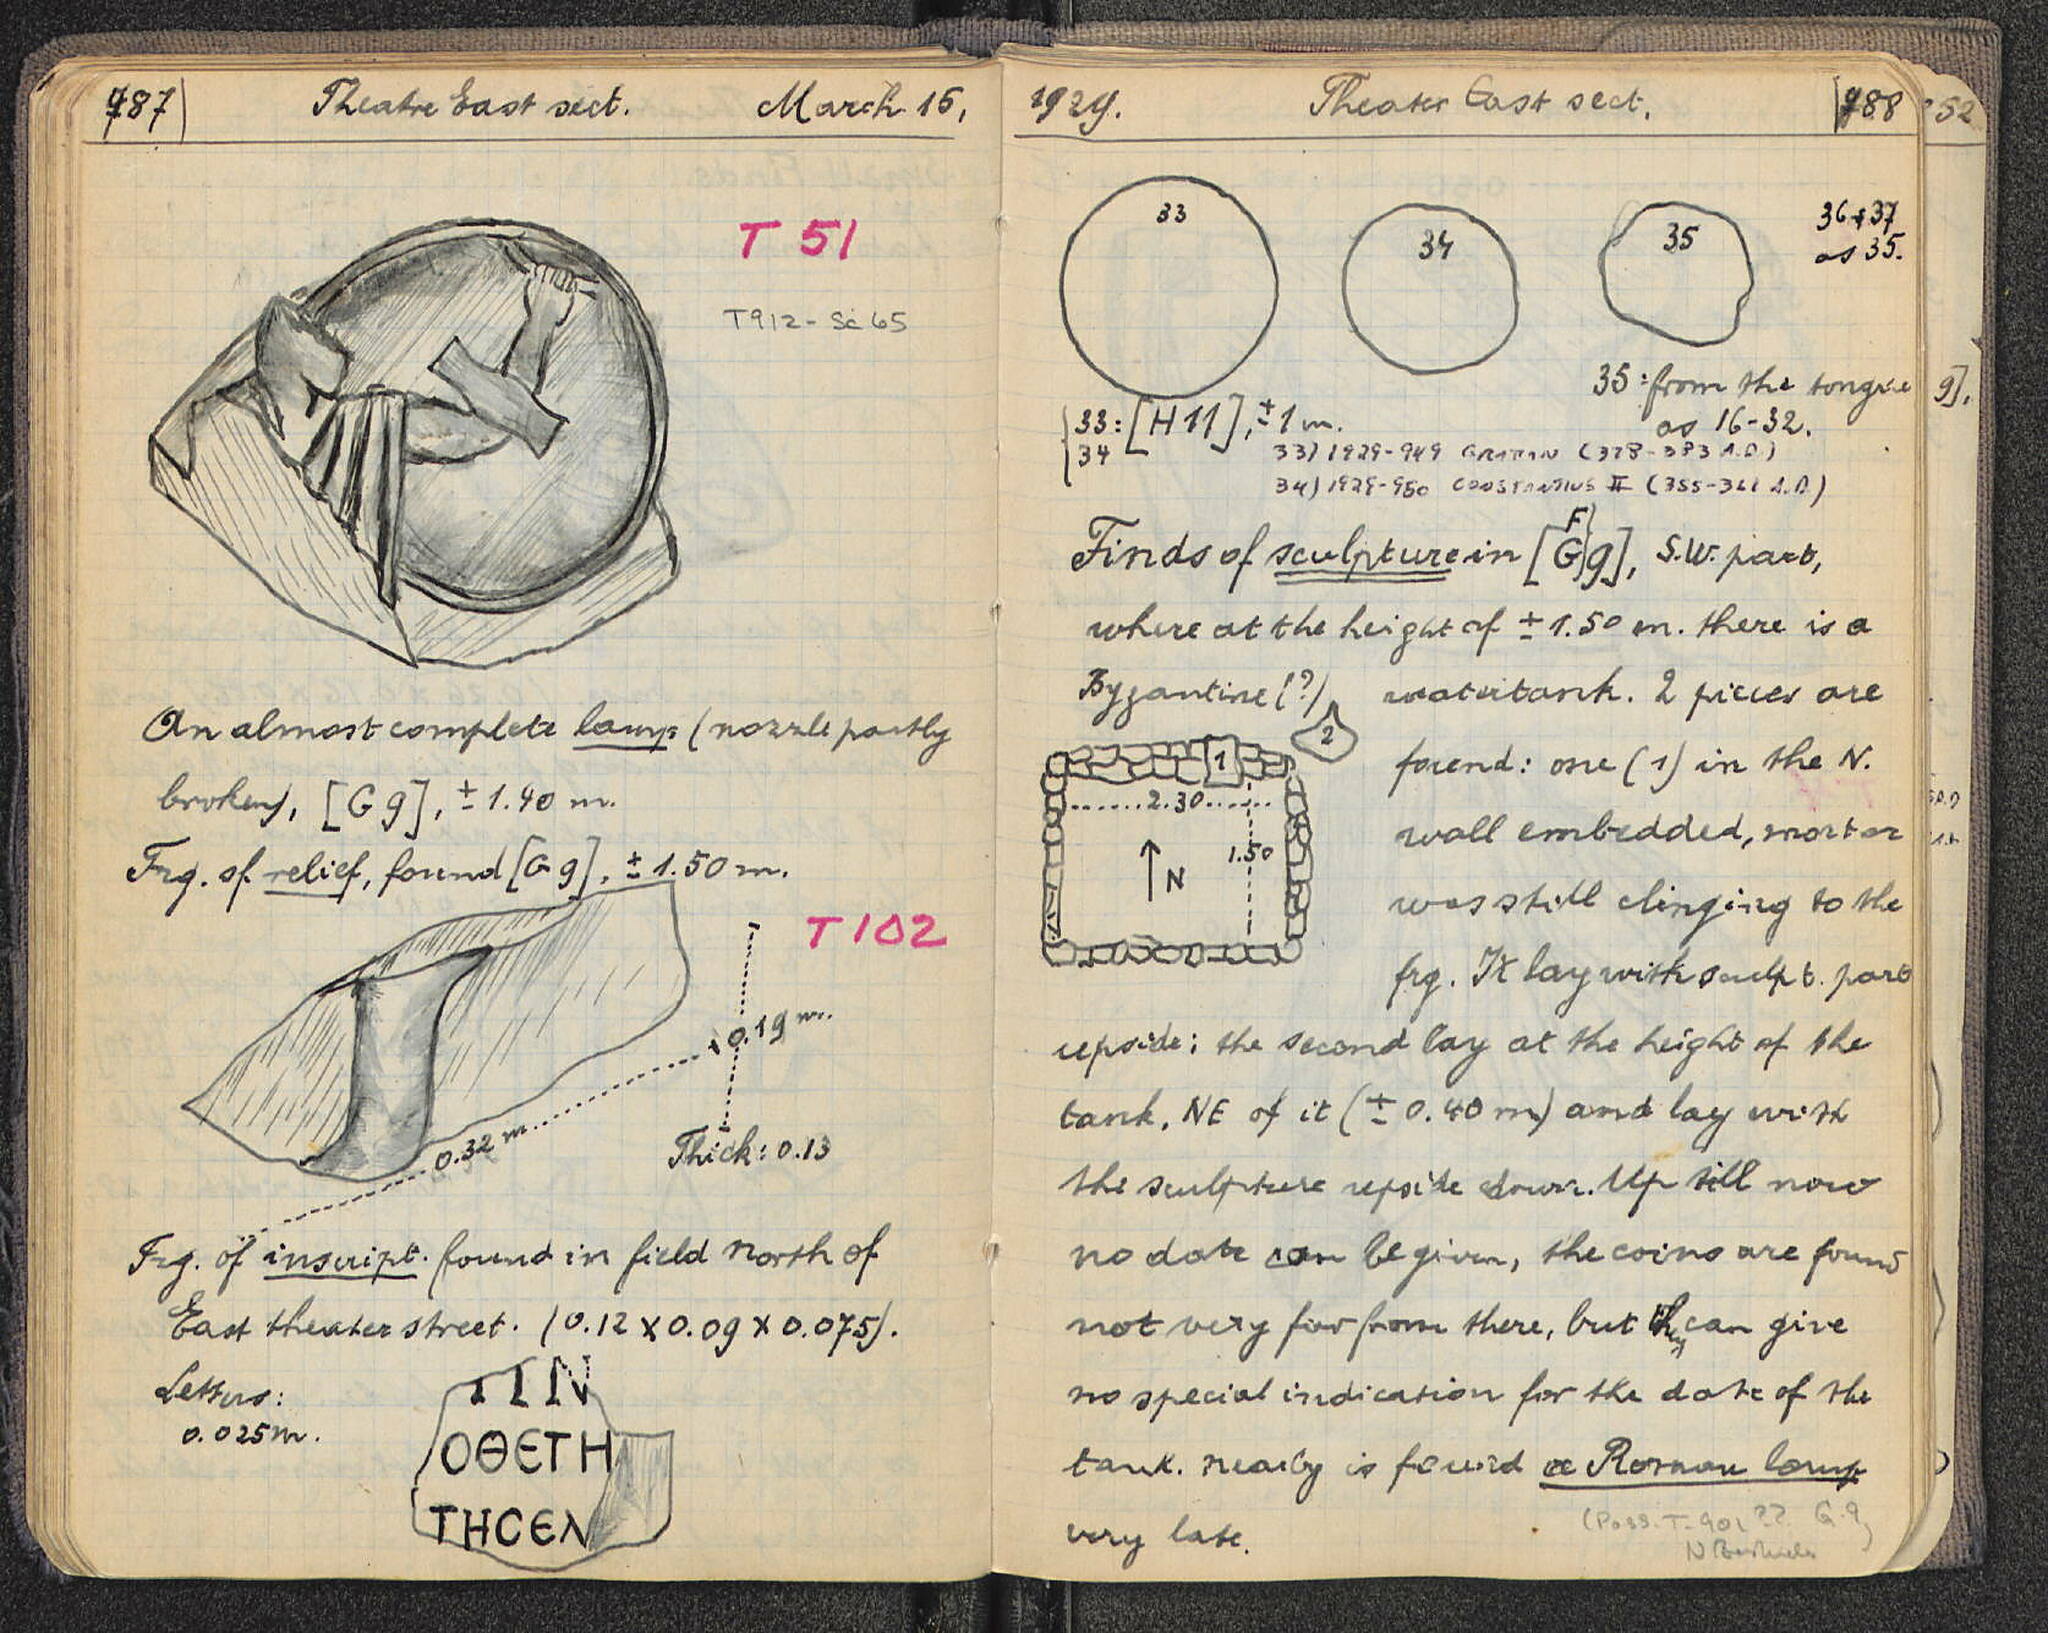 787
Theatre East sect.
March 15,
T 51
T912 - Sc 65
An almost complete lamp (nozzle partly
broken), [G g], ± 1.40 m.
Frg. of relief, found [G g], ± 1.50 m.
T 102
0.19 m.
0.32 m.
Thick: 0.13
Frg. of inscript. found in field north of
East theater street. (0.12 x 0.09 x 0.075).
Letters:
0.025 m.
ΟΘЄΤΗ
ΤΗCЄΛ
1929.
Theater East sect.
788
52
33
34
35
36 & 37
as 35.
35: from the tongue
as 16-32.
g],
33: [H 11], ± 1 m.
34
33) 1929-949 GRATIAN (378-383 A.D)
34) 1929-950 CONSTANTIUS II (355-361 A.D)
F
Finds of sculpture in [G g], S.W. part,
where at the height of ± 1.50 m. there is a
Byzantine (?) watertank. 2 pieces are
found: one (1) in the N.
wall embedded, mortar
was still clinging to the
frg. It lay with sculpt. part
1
2
2.30
1.50
N
upside; the second lay at the height of the
tank, NE of it (± 0.40 m) and lay with
the sculpture upside down. Up till now
no date can be given, the coins are found
not very far from there, but they can give
no special indication for the date of the
tank. nearby is found a Roman lamp
very late.
(Poss. T-901 ?? G.9,